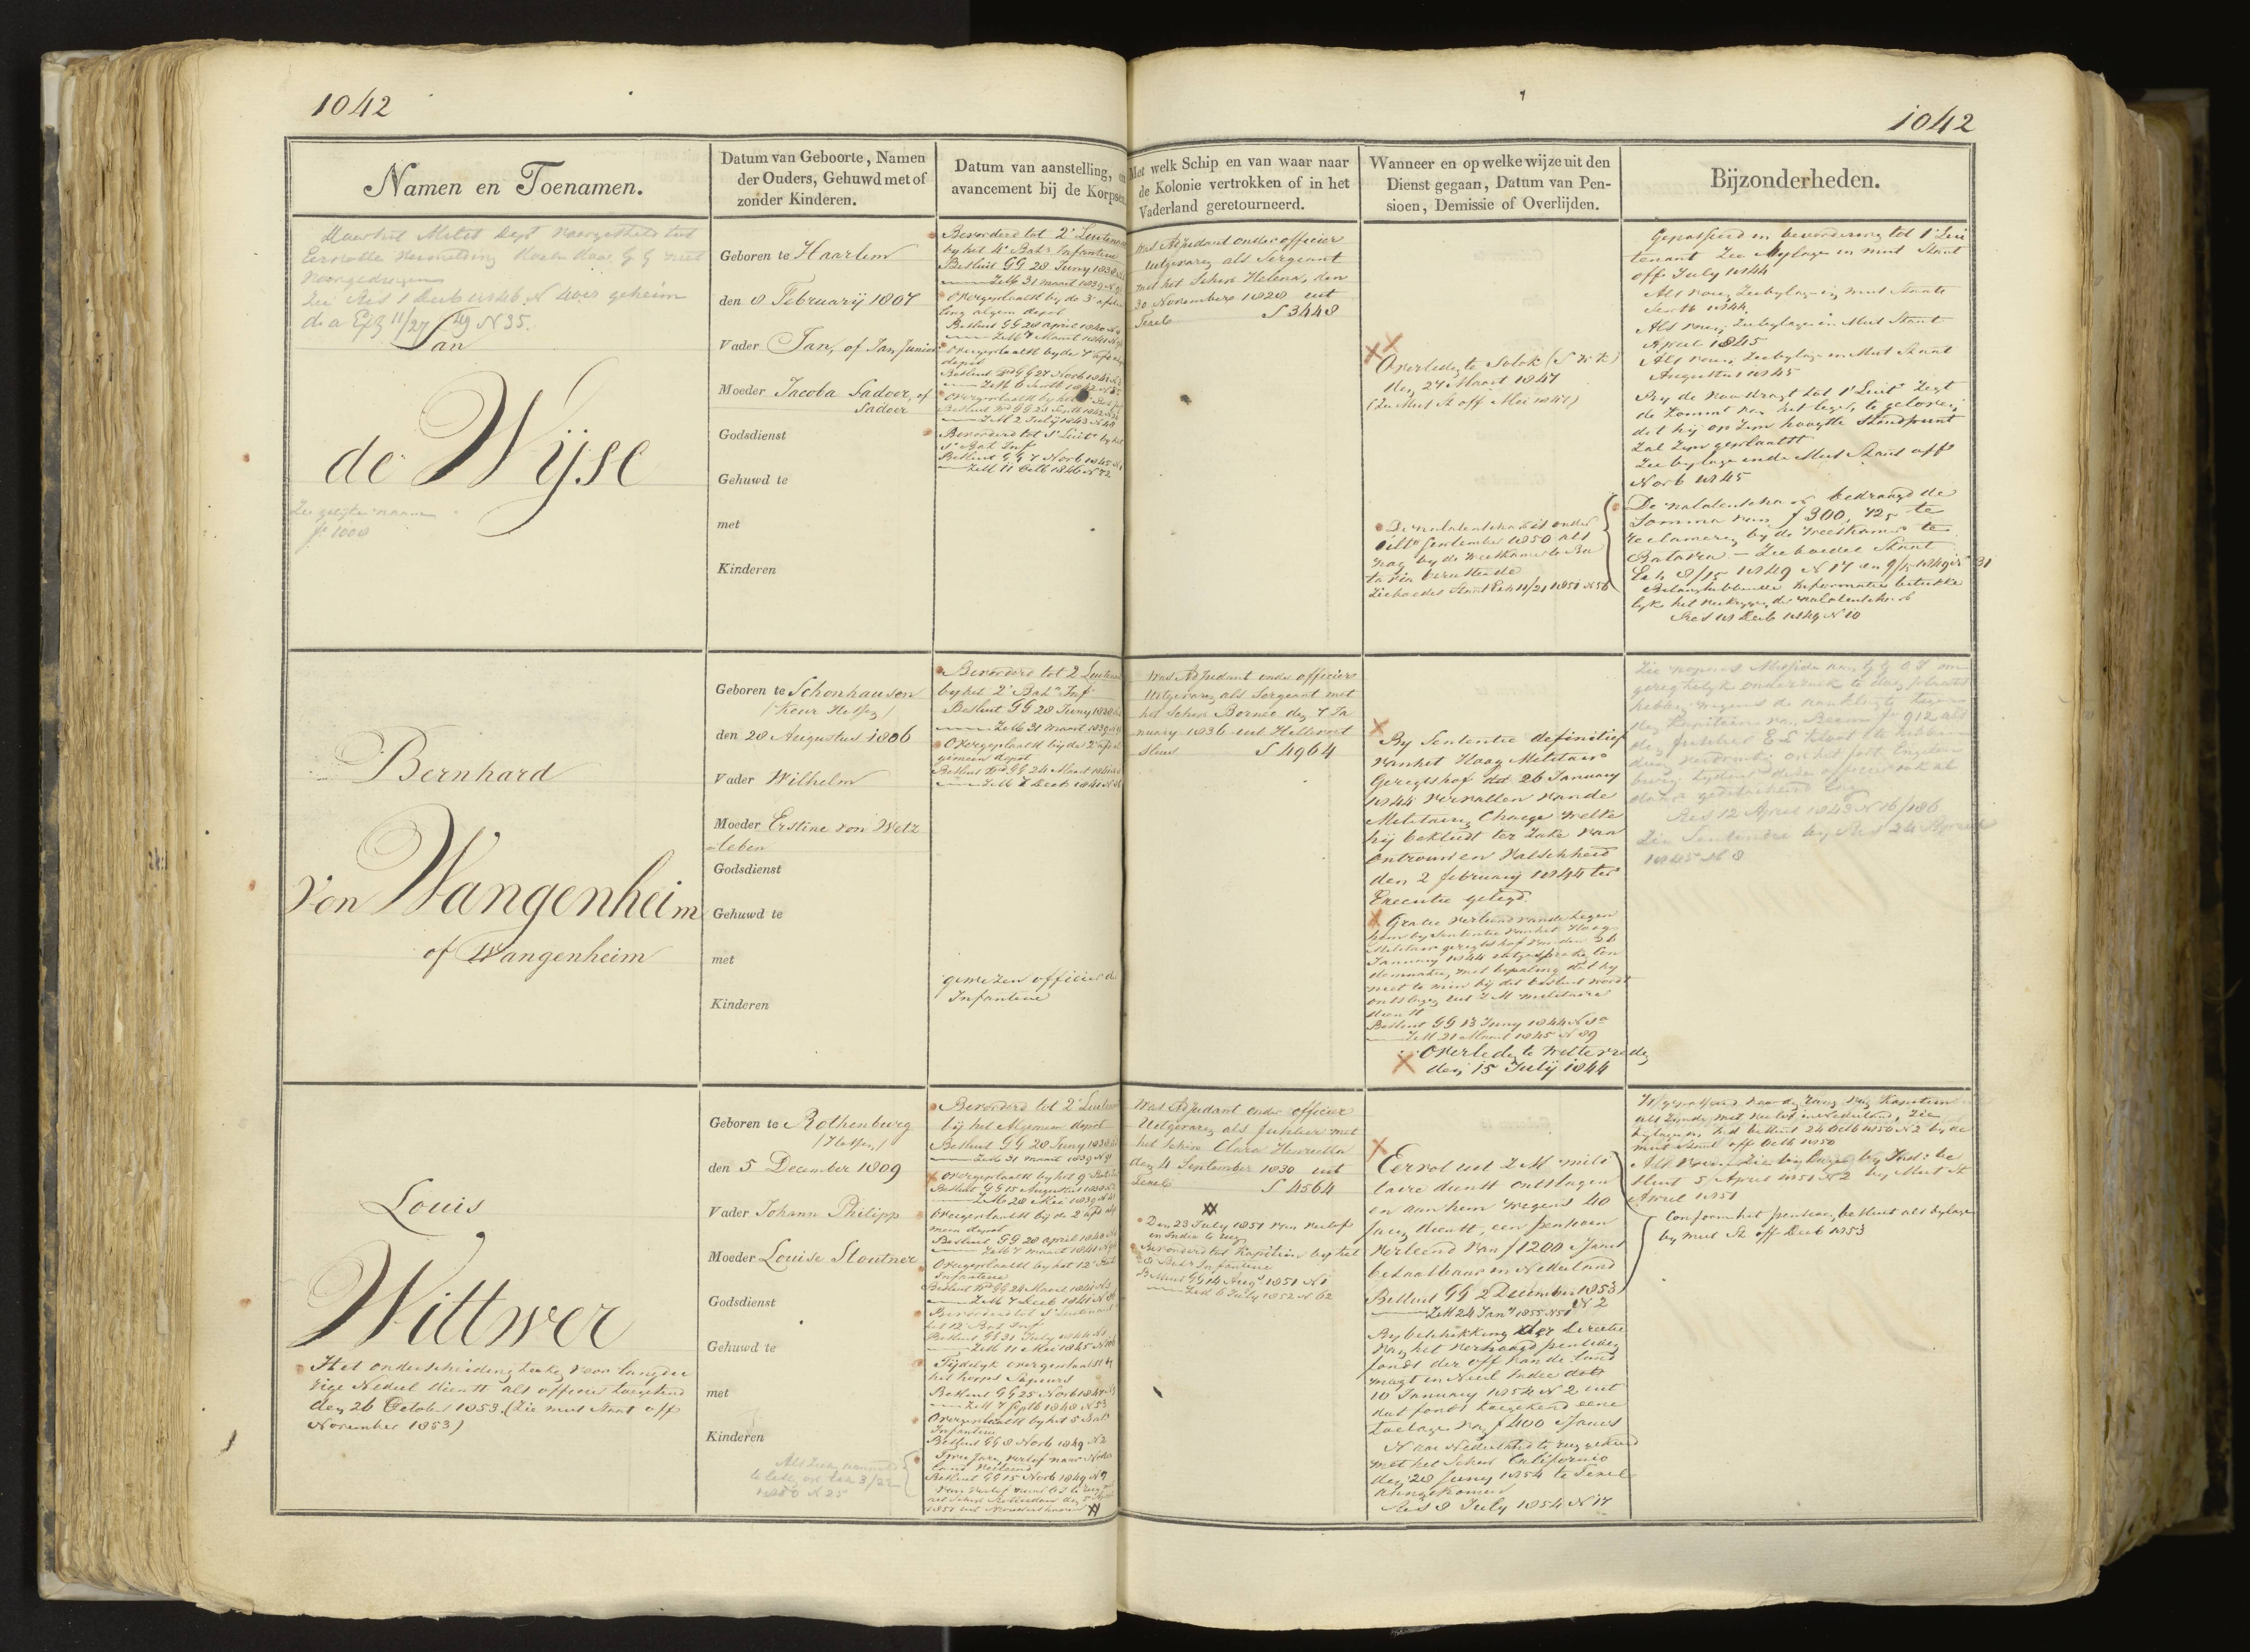 1042
1042
Namen en Toenamen.
Datum van Geboorte, Namen
der Ouders, Gehuwd met of
zonder Kinderen.
Datum van aanstelling, en
avancement bij de Korpsen
Met welk Schip en van waar naar
de Kolonie vertrokken of in het
Vaderland geretourneerd.
Wanneer en op welke wijze uit den
Dienst gegaan, Datum van Pen-
sioen, Demissie of Overlijden.
Bijzonderheden.
Jan
de Wijse
Zie
fo 1008
Geboren te Haarlem
den 8 February 1807
Vader Jan, of Jan Junior
Moeder Jacoba Sadoer, of
Sadoer
Godsdienst
Gehuwd te
met
Kinderen
Bevorderd tot 2e Luitenant
by het 4e Bat Infanterie
Besluit GG 28 Juny 1838
31 maart 1839
Overgeplaatst by de 3e
ling algem depot
Besluit GG 28 april 1840
Maart 1841
Overgeplaatst by de 7
depot
Besluit GG 27 Novb 1841
Overgeplaatst by het
Besluit GG 23 Septb 1842
2 July 1843 N 48
Bevorderd tot 1e Luit by het
Bat Inf
Besluit GG 7 Novb 1845 N 1
11 Octb 1846 N 72
was Adjudant onder officier
uitgevaren als Sergeant
met het Schip Helena, den
30 November 1828 uit
Texel S 3448
Overleden te Solok (S W K)
den 27 Maart 1847
(Zie Mut St off Mei 1847)
De nalatenschap is onder
ult September 1850 als
nog by de weeskamer te Ba
tavia berustende
Zie boedel Staat Exh 11/21 1851 N 56
Gepasseerd in bevordering tot 1e Lui
tenant Zie bylage in mut Staat
off July 1844
Als voren Zie bylage in mut Staat
Septb 1844
Als voren Zie bylage in Mut Staat
April 1845
Als voren Zie bylage in Mut Staat
Augustus 1845
By de voordragt tot 1e Luit Zegt
de kommt van het leger te gelooven
dat hij op Zyn hoogste Standpunt
Zal Zyn geplaatst
Zie bylage in de Mut Staat off
Novb 1845
De nalatenschap bedraagd de
Somma van f 300,725 te
reclameren by de weeskamer te
Batavia - Zie boedel Staat
Exh 8/15 1849 N 17 en 9/15 1849 N 31
Belanghebbende informatie betrekke
lyk het verkrygen der nalatenschap
Res 18 Decb 1849 N 10
Bernhard
Von Wangenheim
of Wangenheim
Geboren te Schonhausen
/Keur Hessen/
den 28 Augustus 1806
Vader Wilhelm
Moeder Erstine von Wetz
leben
Godsdienst
Gehuwd te
met
Kinderen
Bevorderd tot 2 Luitenant
by het 2e Batn Inf
Besluit GG 28 Juny 1838
31 maart 1839
Overgeplaatst by de 2e
gemeen depot
Besluit GG 24 Maart 1841
7 Decb 1841
gewezen officier de
Infanterie
was Adjudant onder officier
Uitgevaren als Sergeant met
het Schip Borneo den 7 Ja
nuary 1836 uit Hellevoet
sluis S 4964
By Sententie definitief
van het Hoog Militair
Geregtshof dd 26 January
1844 vervallen van de
Militaire Charge welke
hij bekleedt ter Zake van
ontrouw en valschheid
den 2 february 1844 ter
Executie gelegd.
Gratie verleend van de tegen
hem by Sententie van het Hoog
Militair geregtshof van den 26
January 1844 uitgesproken Con
demnatie, met bepaling dat hy
niet te min bij dit besluit wordt
ontslagen uit Z M militaire
dienst
Besluit GG 13 Juny 1844 N 8a
21 Maart 1845 N 89
Overleden te Weltevreden
den 15 Julij 1844
Res 12 April 1843 N 16/186
Zie Sententie by Res 24 April
1845 N 8
Louis
Wittwer
Het onderscheidingsteeken voor langdu
rige Nederl dienst als officier toegekend
den 26 October 1853. (Zie mut Staat off
November 1853)
Geboren te Rothenburg
/Hessen/
den 5 December 1809
Vader Johann Philipp
Moeder Louise Stoutner
Godsdienst
Gehuwd te
met
Kinderen
Bevorderd tot 2e Luitenant
bij het Algemeen depot
Besluit GG 28 Juny 1838
31 maart 1839 N 91
Overgeplaatst by het 9e
Besluit GG 15 Augustus 1838
28 Mei 1839
Overgeplaatst bij de 2e afd alg
meen depot
Besluit GG 28 april 1840
7 maart 1841
Overgeplaatst by het 12e Bat
Infanterie
Besluit GG 24 Maart 1841
7 Decb 1841
Bevorderd tot 1e Luitenant
het 12e Bat Inf
Besluit GG 31 July 1844 N 1
11 Mei 1845
Tijdelyk overgeplaatst by
het korps Sapeurs
Besluit GG 25 Novb 1847
7 Septb 1848 N 53
Overgeplaatst by het 5 Bat
Infanterie
Besluit GG 8 Novb 1849 N 2
Twee Jaren verlof naar Neder
land verleend
Besluit GG 15 Novb 1849 N 7
was Adjudant onder officier
Uitgevaren als fuselier met
het Schip Clara Henrietta
den 4 September 1830 uit
Texel S 4564
Den 23 July 1851 van verlof
in Indie terug
Bevorderd tot Kapitein by het
8 Bat Infanterie
Besluit GG 14 Aug 1851 N 1
6 July 1852 N 62
Eervol uit Z M mili
taire dienst ontslagen
en aan hem wegens 40
Jaren dienst, een pensioen
verleend van f 1200 Jaars
betaalbaar in Nederland
Besluit GG 2 December 1853
N 2
24 Jany 1855 N 51
By beschikking der Directie
van het verhoogd pensioen
fonds der off van de land
magt in Neerl Indie dd
10 January 1854 N 2 uit
dat fonds toegekend eene
toelage van f 400 Jaars
Naar Nederland terug gekeerd
met het Schip California
den 28 Juny 1854 te Texel
aangekomen
Res 8 July 1854 N 17
Is gepasseerd voor den rang van Kapitein
als Zynde met verlof in Nederland, Zie
bylage en Ind besluit 24 Octb 1850 N 2 by de
mut Staat off Octb 1850
Als voren Zie bylage by Ind: be
sluit 5 April 1851 N 2 by Mut St
April 1851
Conform het pensioen besluit als bylage
by mut St off Decb 1853